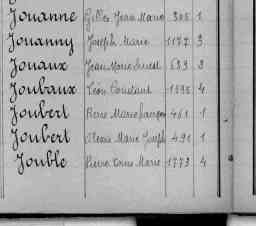 Jouanne Gilles Jean Marie 305 1
Jouanny Joseph Marie 1177 3
Jouaux Jean Marie 633 2
Joubaux Léon Constant 1595 4
Joubert Pierre Marie 461 1
Joubert Alexis Marie Joseph 491 1
Jouble Pierre Marie 1773 4